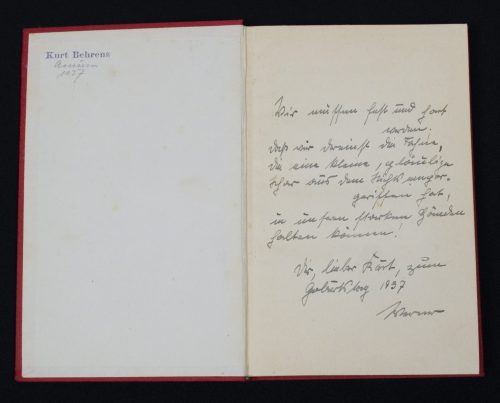 Kurt Behrens
1937
Wir müssen fest und hart
werden.
daß wir dereinst die Fahne,
die eine kleine, gläubige
Schar aus dem Nichts empor-
gerissen hat,
in unsern starken Händen
halten können!
Dir, lieber Kurt, zum
Geburtstag 1937
Werner